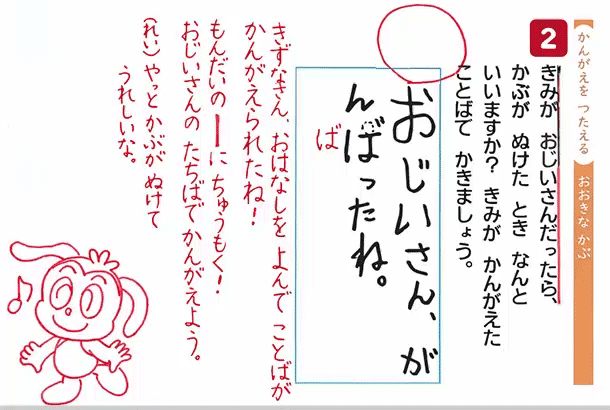 かんがえを つたえる
おおきな かぶ
2
きみが おじいさんだったら、
かぶが ぬけた とき なんと
いいますか? きみが かんがえた
ことばで かきましょう。
おじいさん、が
んばったね。
ば
きずなきん、おはなしを よんで ことばが
かんがえられたね!
もんだいの ーに ちゅうもく!
おじいさんの たちばで かんがえよう。
(れい) やっと かぶが ぬけて
うれしいな。